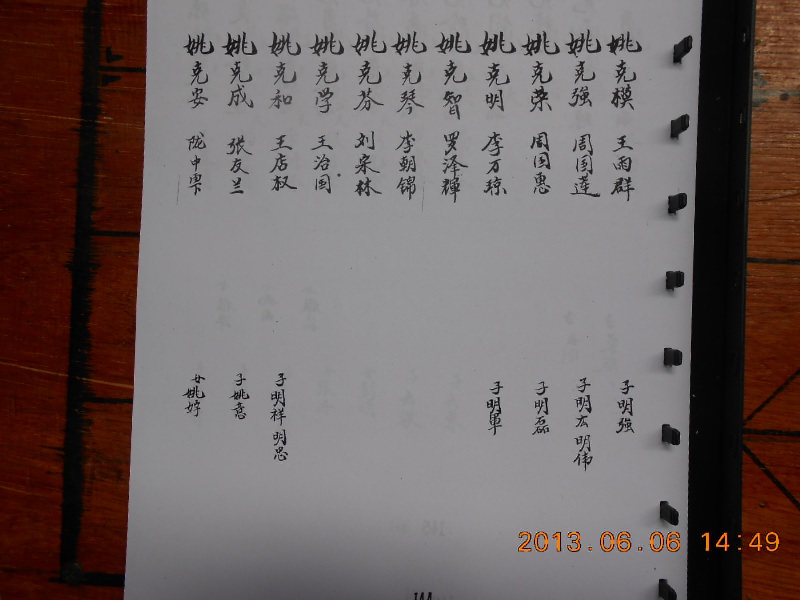 姚克模 王雨群 子明强
姚克强 周国莲 子明広明伟
姚克荣 周国惠 子明磊
姚克明 李万琼 子明军
姚克智 罗泽辉
姚克琴 李朝锦
姚克芬 刘宗林
姚克学 王治国
姚克和 王店叔 子明祥明忠
姚克成 张友兰 子姚意
姚克安 陇中 女姚婷
144
2013.06.06 14:49